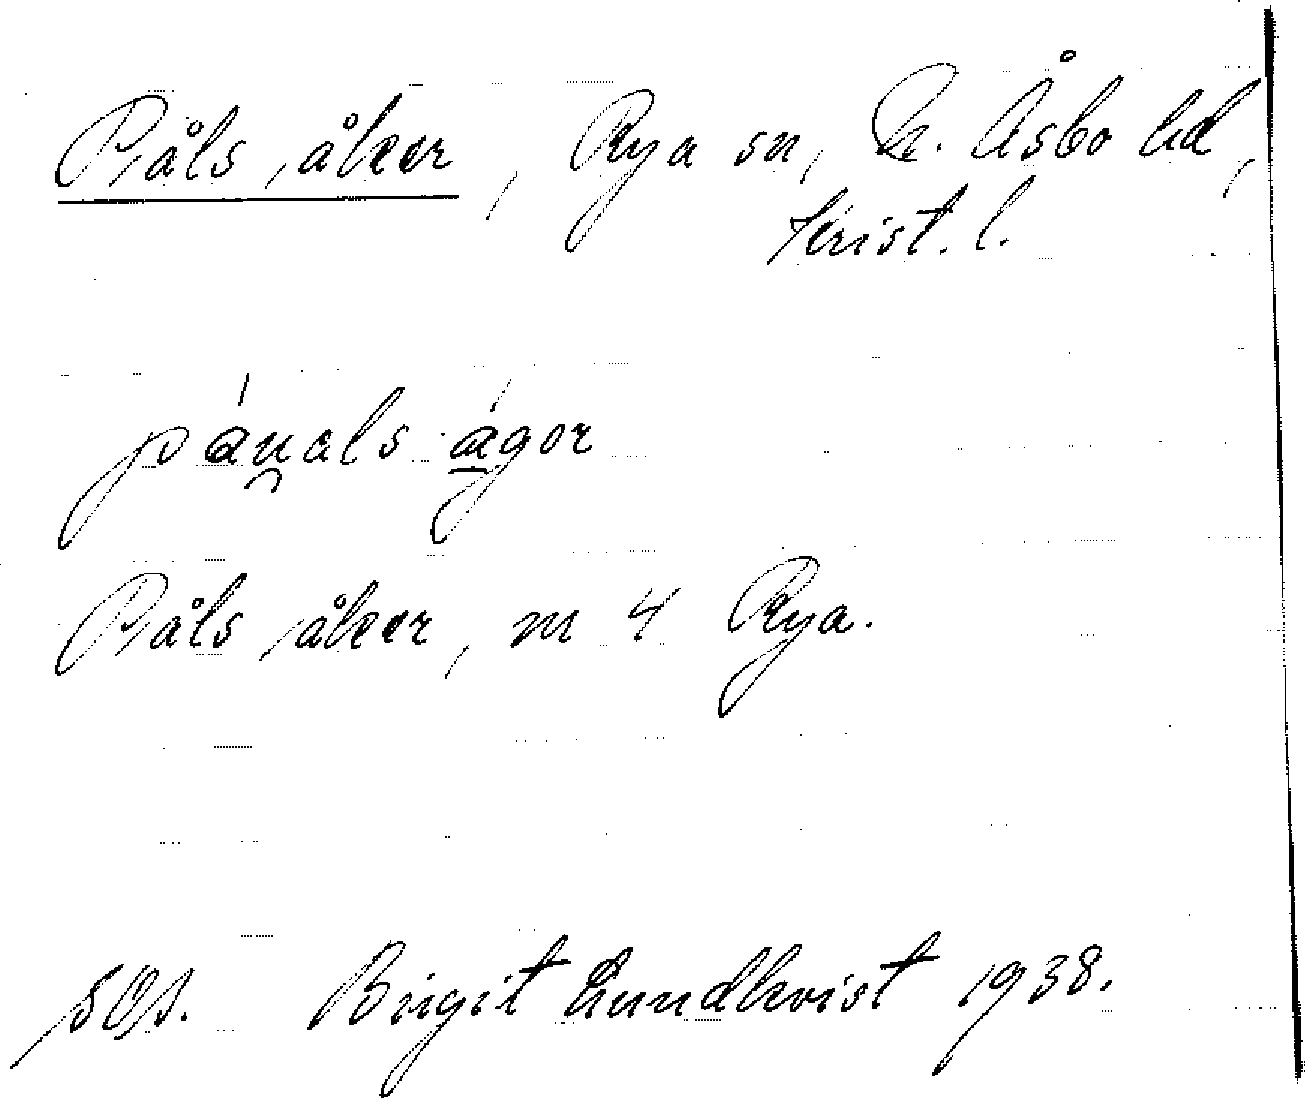 Påls åker, Rya sn, N. Åsbo hd,
Krist. l.
páu̯als á̱gor
Påls åker, m 4 Rya.
Birgit Lundkvist 1938.